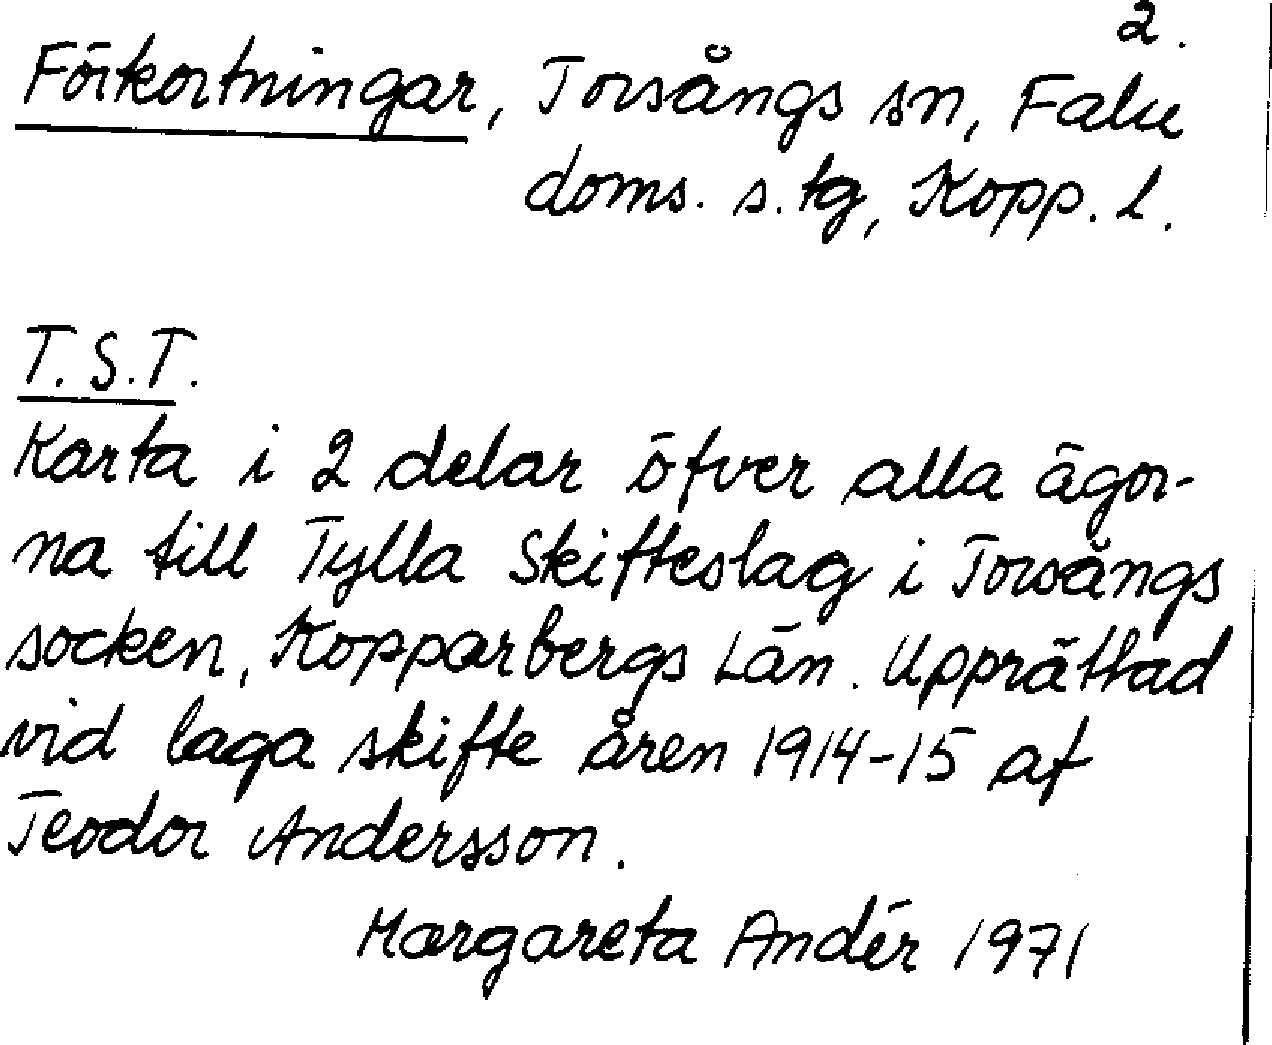 2.
Förkortningar, Torsångs sn, Falu
doms. s. tg, Kopp. l.
T. S. T.
Karta i 2 delar öfver alla ägor-
na till Tylla Skifteslag i Torsångs
socken, Kopparbergs Län. Upprättad
vid laga skifte åren 1914-15 af
Teodor Andersson.
Margareta Andér 1971